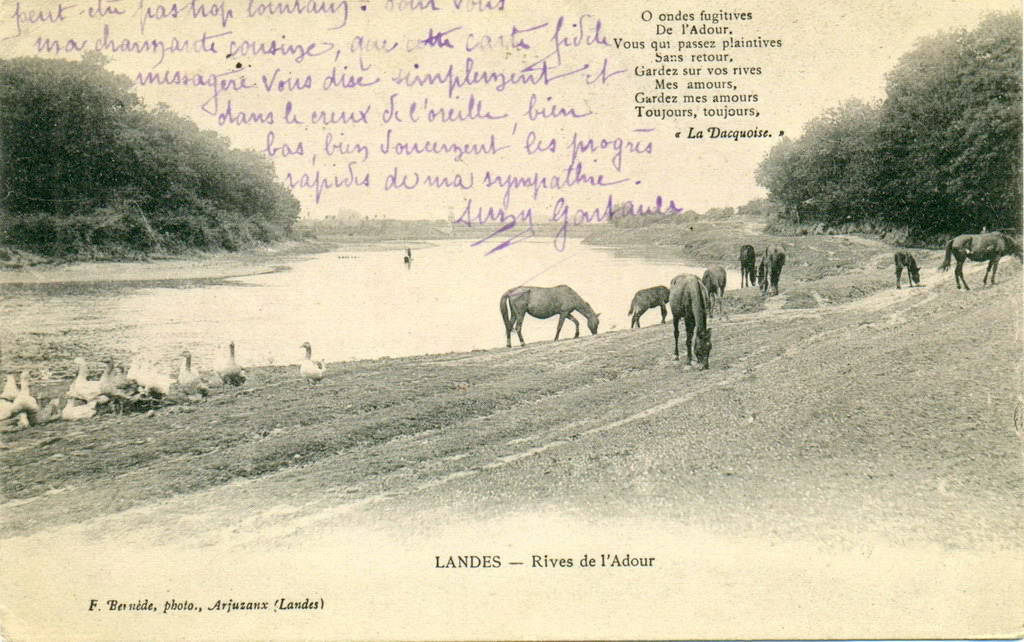 peut-être pas trop lointain. Tout vous
ma charmante cousine, que cette carte fidèle
messagère vous dise simplement et
dans le creux de l'oreille, bien
bas, bien doucement les progrès
rapides de ma sympathie.
Suzy
O ondes fugitives
De l'Adour.
Vous qui passez plaintives
Sans retour,
Gardez sur vos rives
Mes amours,
Gardez mes amours
Toujours, toujours,
« La Dacquoise. »
LANDES — Rives de l'Adour
F. Bernède, photo., Arjuzanx (Landes)